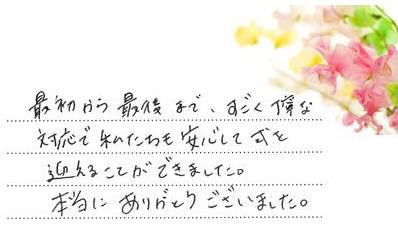 最初から最後まで、すごく丁寧な
対応で私たちも安心して式を
迎えることができました。
本当にありがとうございました。